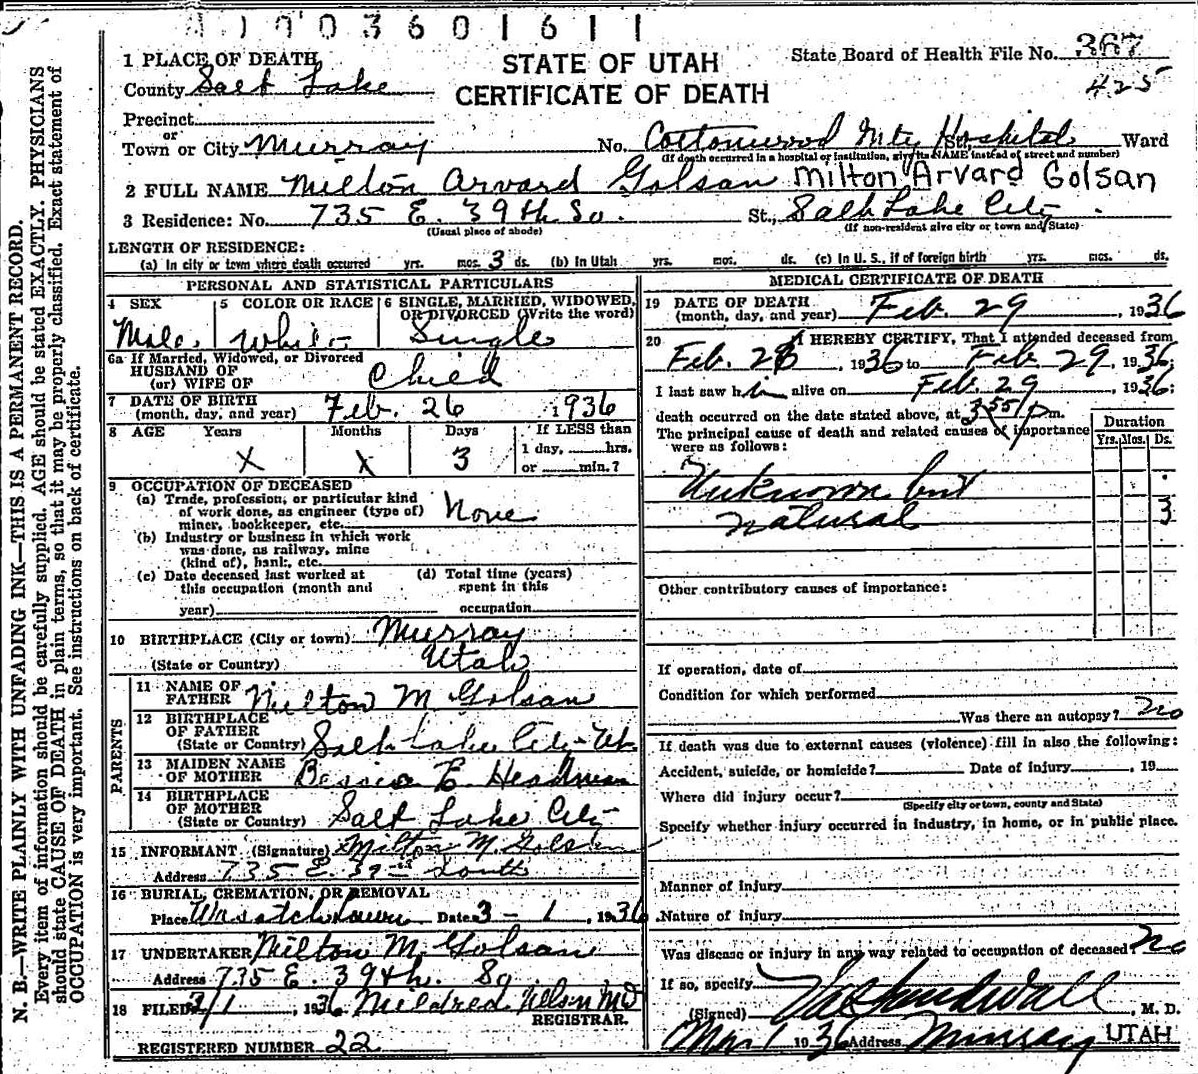 1003601611
1 PLACE OF DEATH
STATE OF UTAH
CERTIFICATE OF DEATH
State Board of Health File No. 367
425
County Salt Lake
Precinct
or
Town or City Murray No. Cottonwood Hospital St. Ward
(If death occurred in a hospital or institution, give its NAME instead of street and number)
2 FULL NAME Milton Arvard Golsan Milton Arvard Golsan
3 Residence: No. 735 E. 39th So. St., Salt Lake City.
(Usual place of abode) (If non-resident give city or town and State)
LENGTH OF RESIDENCE:
(a) In city or town where death occurred yrs. mos. 3 ds. (b) In Utah yrs. mos. ds. (c) In U. S., if of foreign birth yrs. mos. ds.
PERSONAL AND STATISTICAL PARTICULARS
4 SEX
Male
5 COLOR OR RACE
White
6 SINGLE, MARRIED, WIDOWED, OR DIVORCED (Write the word)
Single
6a If Married, Widowed, or Divorced
HUSBAND OF
(or) WIFE OF Child
7 DATE OF BIRTH
(month, day, and year) Feb. 26 1936
8 AGE Years Months Days If LESS than
1 day, hrs.
or min.?
X X 3
9 OCCUPATION OF DECEASED
(a) Trade, profession, or particular kind
of work done, as engineer (type of)
miner, bookkeeper, etc. None
(b) Industry or business in which work
was done, as railway, mine
(kind of), bank, etc.
(c) Date deceased last worked at
this occupation (month and
year)
(d) Total time (years)
spent in this
occupation
10 BIRTHPLACE (City or town) Murray
(State or Country) Utah
PARENTS
11 NAME OF
FATHER Milton M. Golsan
12 BIRTHPLACE
OF FATHER
(State or Country) Salt Lake City - Ut.
13 MAIDEN NAME
OF MOTHER Bessie E. Headman
14 BIRTHPLACE
OF MOTHER
(State or Country) Salt Lake City
15 INFORMANT (Signature) Milton M. Golsan
Address 735 E. 39th South
16 BURIAL, CREMATION, OR REMOVAL
Place Wasatch Lawn Date 3 - 1, 1936
17 UNDERTAKER Milton M. Golsan
Address 735 E. 39th. So.
18 FILED 3/1, 1936 Mildred Nelson MD
REGISTRAR.
REGISTERED NUMBER 22
MEDICAL CERTIFICATE OF DEATH
19 DATE OF DEATH
(month, day, and year) Feb. 29, 1936
20 I HEREBY CERTIFY, That I attended deceased from
Feb. 26, 1936 to Feb 29, 1936,
I last saw him alive on Feb. 29, 1936;
death occurred on the date stated above, at 3 55 p m.
The principal cause of death and related causes of importance
were as follows:
Duration
Yrs. Mos. Ds.
Unknown but
natural 3
Other contributory causes of importance:
If operation, date of
Condition for which performed
Was there an autopsy? no
If death was due to external causes (violence) fill in also the following:
Accident, suicide, or homicide? Date of injury, 19
Where did injury occur?
(Specify city or town, county and State)
Specify whether injury occurred in industry, in home, or in public place.
Manner of injury
Nature of injury
Was disease or injury in any way related to occupation of deceased? no
If so, specify
(Signed), M. D.
Mar 1 1936 Address Murray UTAH
N. B.—WRITE PLAINLY WITH UNFADING INK—THIS IS A PERMANENT RECORD.
Every item of information should be carefully supplied. AGE should be stated EXACTLY. PHYSICIANS
should state CAUSE OF DEATH in plain terms, so that it may be properly classified. Exact statement of
OCCUPATION is very important. See instructions on back of certificate.